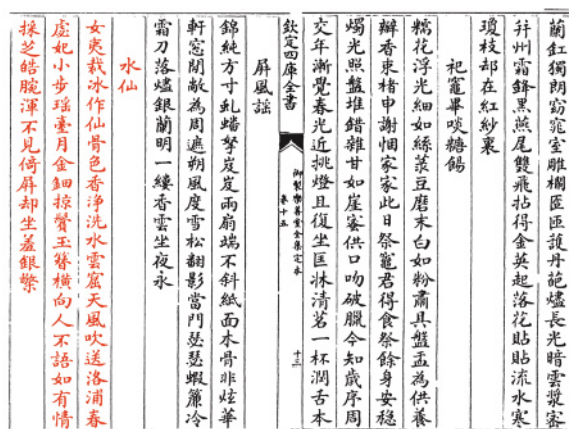 蘭釭獨朗窈窕室雕欄匼匝護丹葩燼長光暗雲漿審
并州霜鋒黑燕尾雙飛拈得金英起落花貼貼流水寒
瓊枝却在紅紗裏
祀竈畢啖糖餳
糯花浮光細如絲菉豆磨末白如粉肅具盤盂為供養
瓣香束楮申謝悃家家此日祭竈君得食祭餘身安穏
燭光照盤堆錯雜甘如崖蜜供口吻破臘今知歲序周
交年漸覺春光近挑燈且復坐匡牀清茗一杯潤舌本
欽定四庫全書
御製樂善堂全集定本
卷十五
十三
屏風謡
錦純方寸虬蟠拏岌岌兩扇端不斜紙面木骨非炫華
軒窓閉敞為周遮朔風度雪松翻影當門瑟瑟蝦簾冷
霜刀落燼銀蘭明一縷香雲坐夜永
水仙
女夷裁冰作仙骨色香浄洗水雲窟天風吹送洛浦春
虙妃小步瑶臺月金鈿掠鬢玉簪横向人不語如有情
採芝皓腕渾不見倚屏却坐羞銀檠